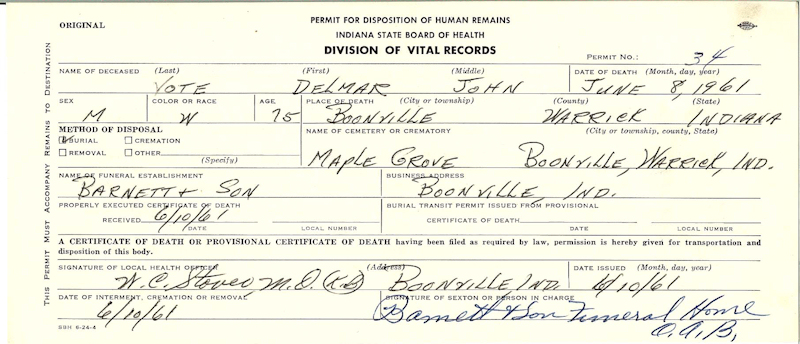 ORIGINAL
PERMIT FOR DISPOSITION OF HUMAN REMAINS
INDIANA STATE BOARD OF HEALTH
DIVISION OF VITAL RECORDS
PERMIT NO.: 34
THIS PERMIT MUST ACCOMPANY REMAINS TO DESTINATION
NAME OF DECEASED (Last) (First) (Middle) DATE OF DEATH (Month, day, year)
VOTE DELMAR JOHN JUNE 8, 1961
SEX COLOR OR RACE AGE PLACE OF DEATH (City or township) (County) (State)
M W 75 BOONVILLE WARRICK INDIANA
METHOD OF DISPOSAL NAME OF CEMETERY OR CREMATORY (City or township, county, State)
BURIAL CREMATION
REMOVAL OTHER
(Specify)
MAPLE GROVE BOONVILLE, WARRICK, IND.
NAME OF FUNERAL ESTABLISHMENT BUSINESS ADDRESS
BARNETT + SON BOONVILLE, IND.
PROPERLY EXECUTED CERTIFICATE OF DEATH BURIAL TRANSIT PERMIT ISSUED FROM PROVISIONAL
RECEIVED 6/10/61 CERTIFICATE OF DEATH
DATE LOCAL NUMBER DATE LOCAL NUMBER
A CERTIFICATE OF DEATH OR PROVISIONAL CERTIFICATE OF DEATH having been filed as required by law, permission is hereby given for transportation and
disposition of this body.
SIGNATURE OF LOCAL HEALTH OFFICER (Address) DATE ISSUED (Month, day, year)
W. C. Stover, M.D. (K.B) BOONVILLE, IND. 6/10/61
DATE OF INTERMENT, CREMATION OR REMOVAL SIGNATURE OF SEXTON OR PERSON IN CHARGE
6/10/61 Barnett & Son Funeral Home
O.A.B.
SBH 6-24-4